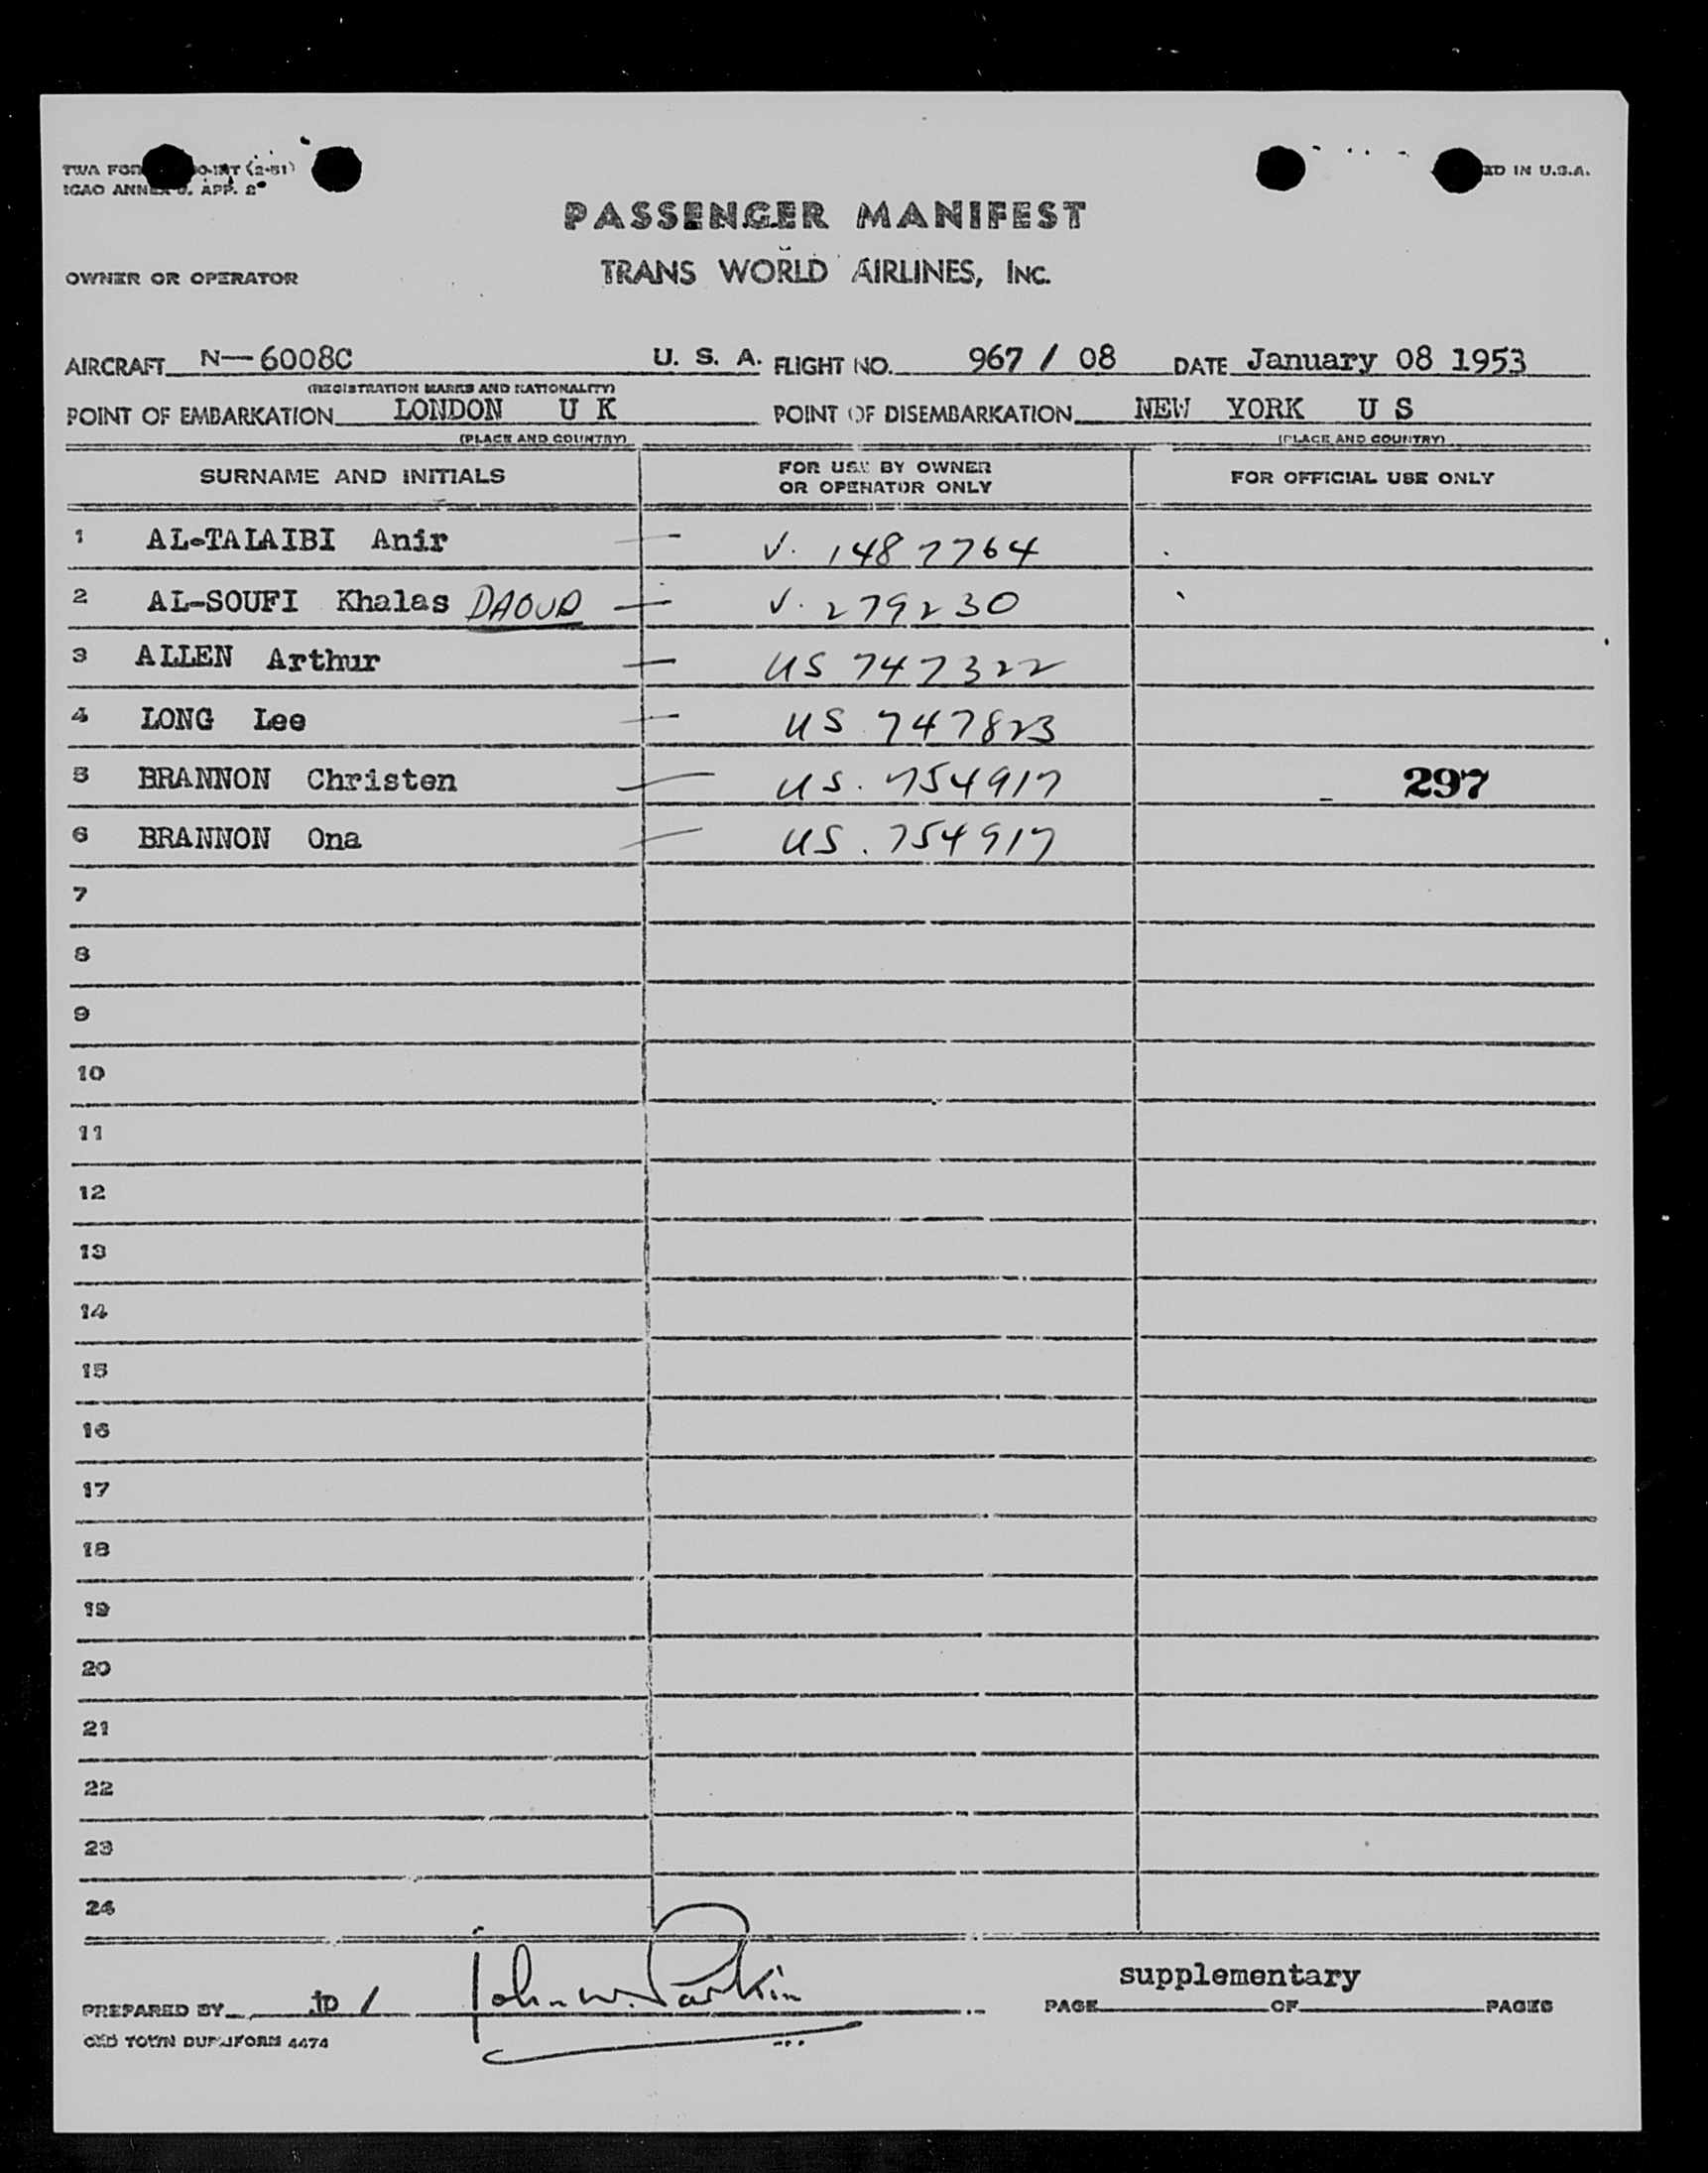 TWA FOR
ICAO ANNEX 9. APP. 2
IN U.S.A.
PASSENGER MANIFEST
OWNER OR OPERATOR TRANS WORLD AIRLINES, INC.
AIRCRAFT N-6008C U. S. A. FLIGHT NO. 967 / 08 DATE January 08 1953
(REGISTRATION MARKS AND NATIONALITY)
POINT OF EMBARKATION LONDON U K POINT OF DISEMBARKATION NEW YORK U S
(PLACE AND COUNTRY) (PLACE AND COUNTRY)
SURNAME AND INITIALS FOR USE BY OWNER OR OPERATOR ONLY FOR OFFICIAL USE ONLY
1 AL-TALAIBI Anir — V. 1487764
2 AL-SOUFI Khalas DAOUD — V. 279230
3 ALLEN Arthur — US 747322
4 LONG Lee — US 747823
5 BRANNON Christen — US. 754917 297
6 BRANNON Ona — US. 754917
7
8
9
10
11
12
13
14
15
16
17
18
19
20
21
22
23
24
supplementary
PREPARED BY jp / John W. Parkin PAGE OF PAGES
4474